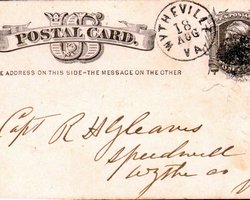 US
POSTAL CARD.
WYTHEVILLE
18
AUG
VA.
E ADDRESS ON THIS SIDE–THE MESSAGE ON THE OTHER
Capt R H Gleaves
Speedwell
Wythe co